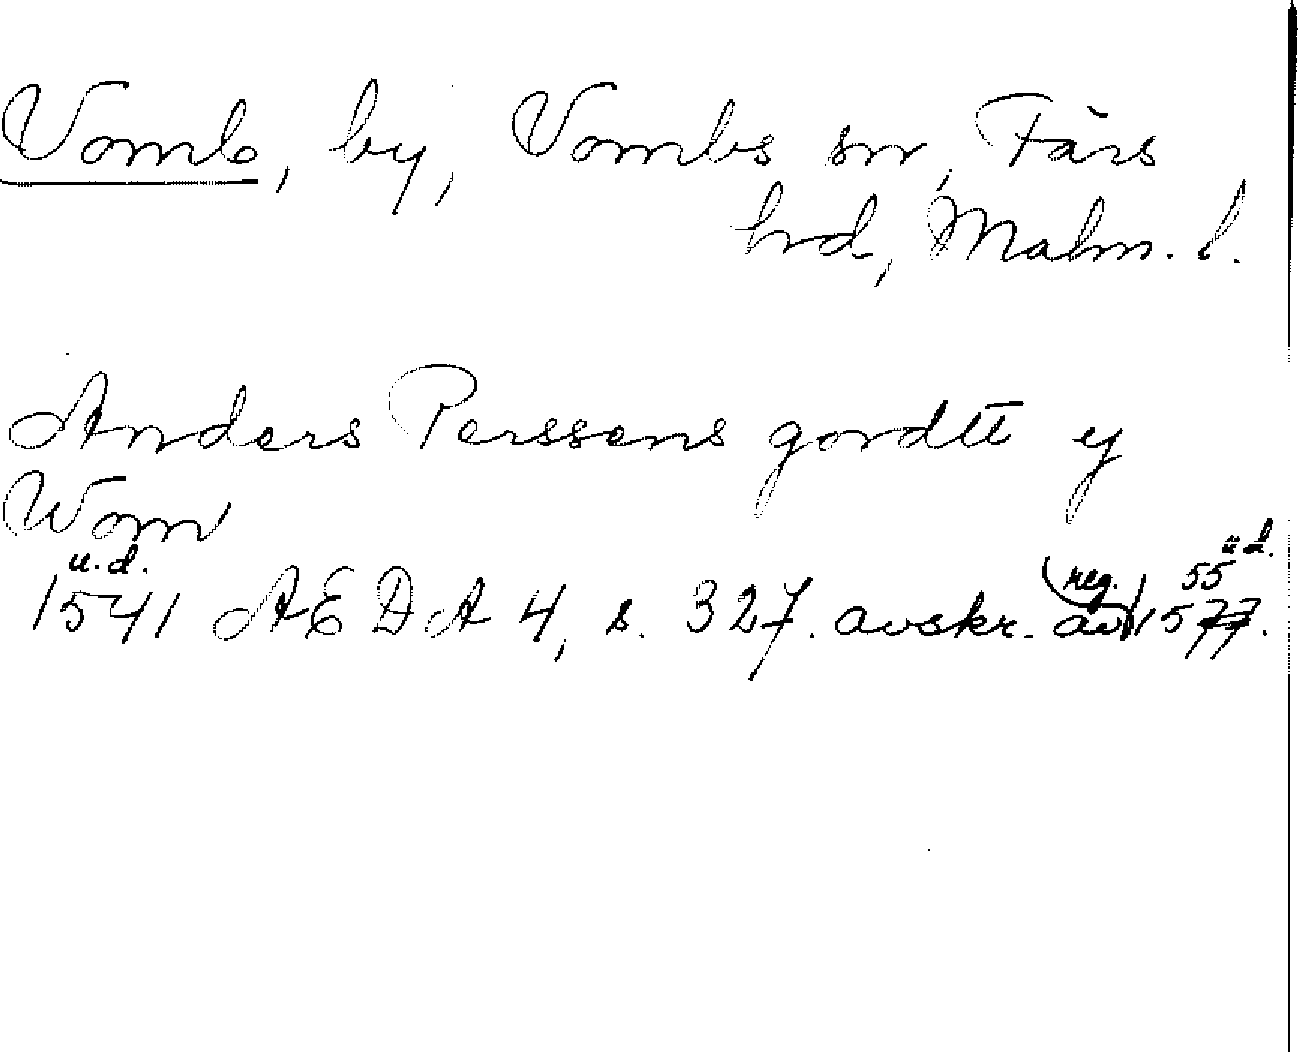 Vomb, by, Vombs sn, Färs
hrd, Malm. l.
Anders Perssens gordtt y
Wom
u.d.
1541 AEDA 4, s. 327. avskr. av (reg.) 1577. 55 u.d.